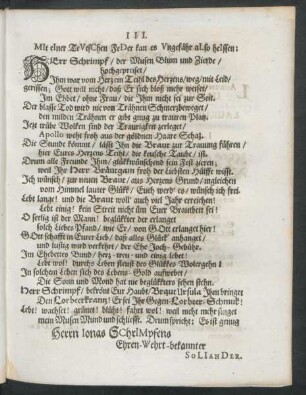 III.
MIt eIner TeVtsChen FeDer kan es Vngefähr aLso heIssen:
HErr Schrimpf / der Musen Blum und Zierde /
hochgepreiset /
Ihm war vom Herzem Teihl des Herzens / weg / mit Leid /
gerissen; Gott will nicht / daß Er sich bloß mehr weiset /
Im Ehbet / ohne Frau / die Ihm nicht sei zur Seit.
Der blasse Tod wird nie von Trähnen Schmerz beweget /
den milden Trähnen er gibt gnug zu trauren Platz.
Jetz trübe Wolken sind der Traurigkeit zerleget /
Apollo weht froh aus der göldnen Haare Schatz.
Die Stunde kömmt / lässt Ihn die Braut zur Trauung führen /
hier Eures Herzens Teihl / die keusche Taube / ist.
Drum alle Freunde Ihm / glükkwünschend sein Fest zieren;
weil Ihr Herr Bräutgam froh der Liebsten Hülffe wisst.
Ich wünsch / zur neuen Braut / aus Herzens Grund / ingleichen
vom Himmel lauter Glükk / Euch werd' es / wünsch ich frei.
Lebt lange! und die Braut woll' auch viel Jahr erreichen!
Lebt einig! kein Streit nicht üm Euer Brautbett sei!
O seelig ist der Mann! beglükkter der erlanget
solch Liebes-Pfand / wie Er / von GOtt erlanget hier!
GOtt schafft in Eurer Lieb / daß alles Glükk' anhanget /
und lustig wird verkehrt / der Ehe Joch-Gebühr.
Im Ehebette Bund / herz- treu- und einig lebet!
Lebt wol! durchs Leben fleust des Glükkes Wolergehn!
In solchem Leben sich des Lebens-Gold aufwebet /
Die Sonn und Mond hat nie beglükkters sehen stehn.
Herr Schrimpf / bekrönt Eur Haubt / Braut Ursula Ihm bringet
Den Lorbeerkrantz! Er sei Ihr Gegen-Lorbeer-Schmuk!
Lebt! wachset! grünet! blüht! fahrt wol! weil nicht mehr singet
mein Musen Mund und schliesst. Drum sprichts: Es ist gnug
Herrn Ionas SChrIMpfens
Ehren-Wehrt-bekannter
SoLIanDer.